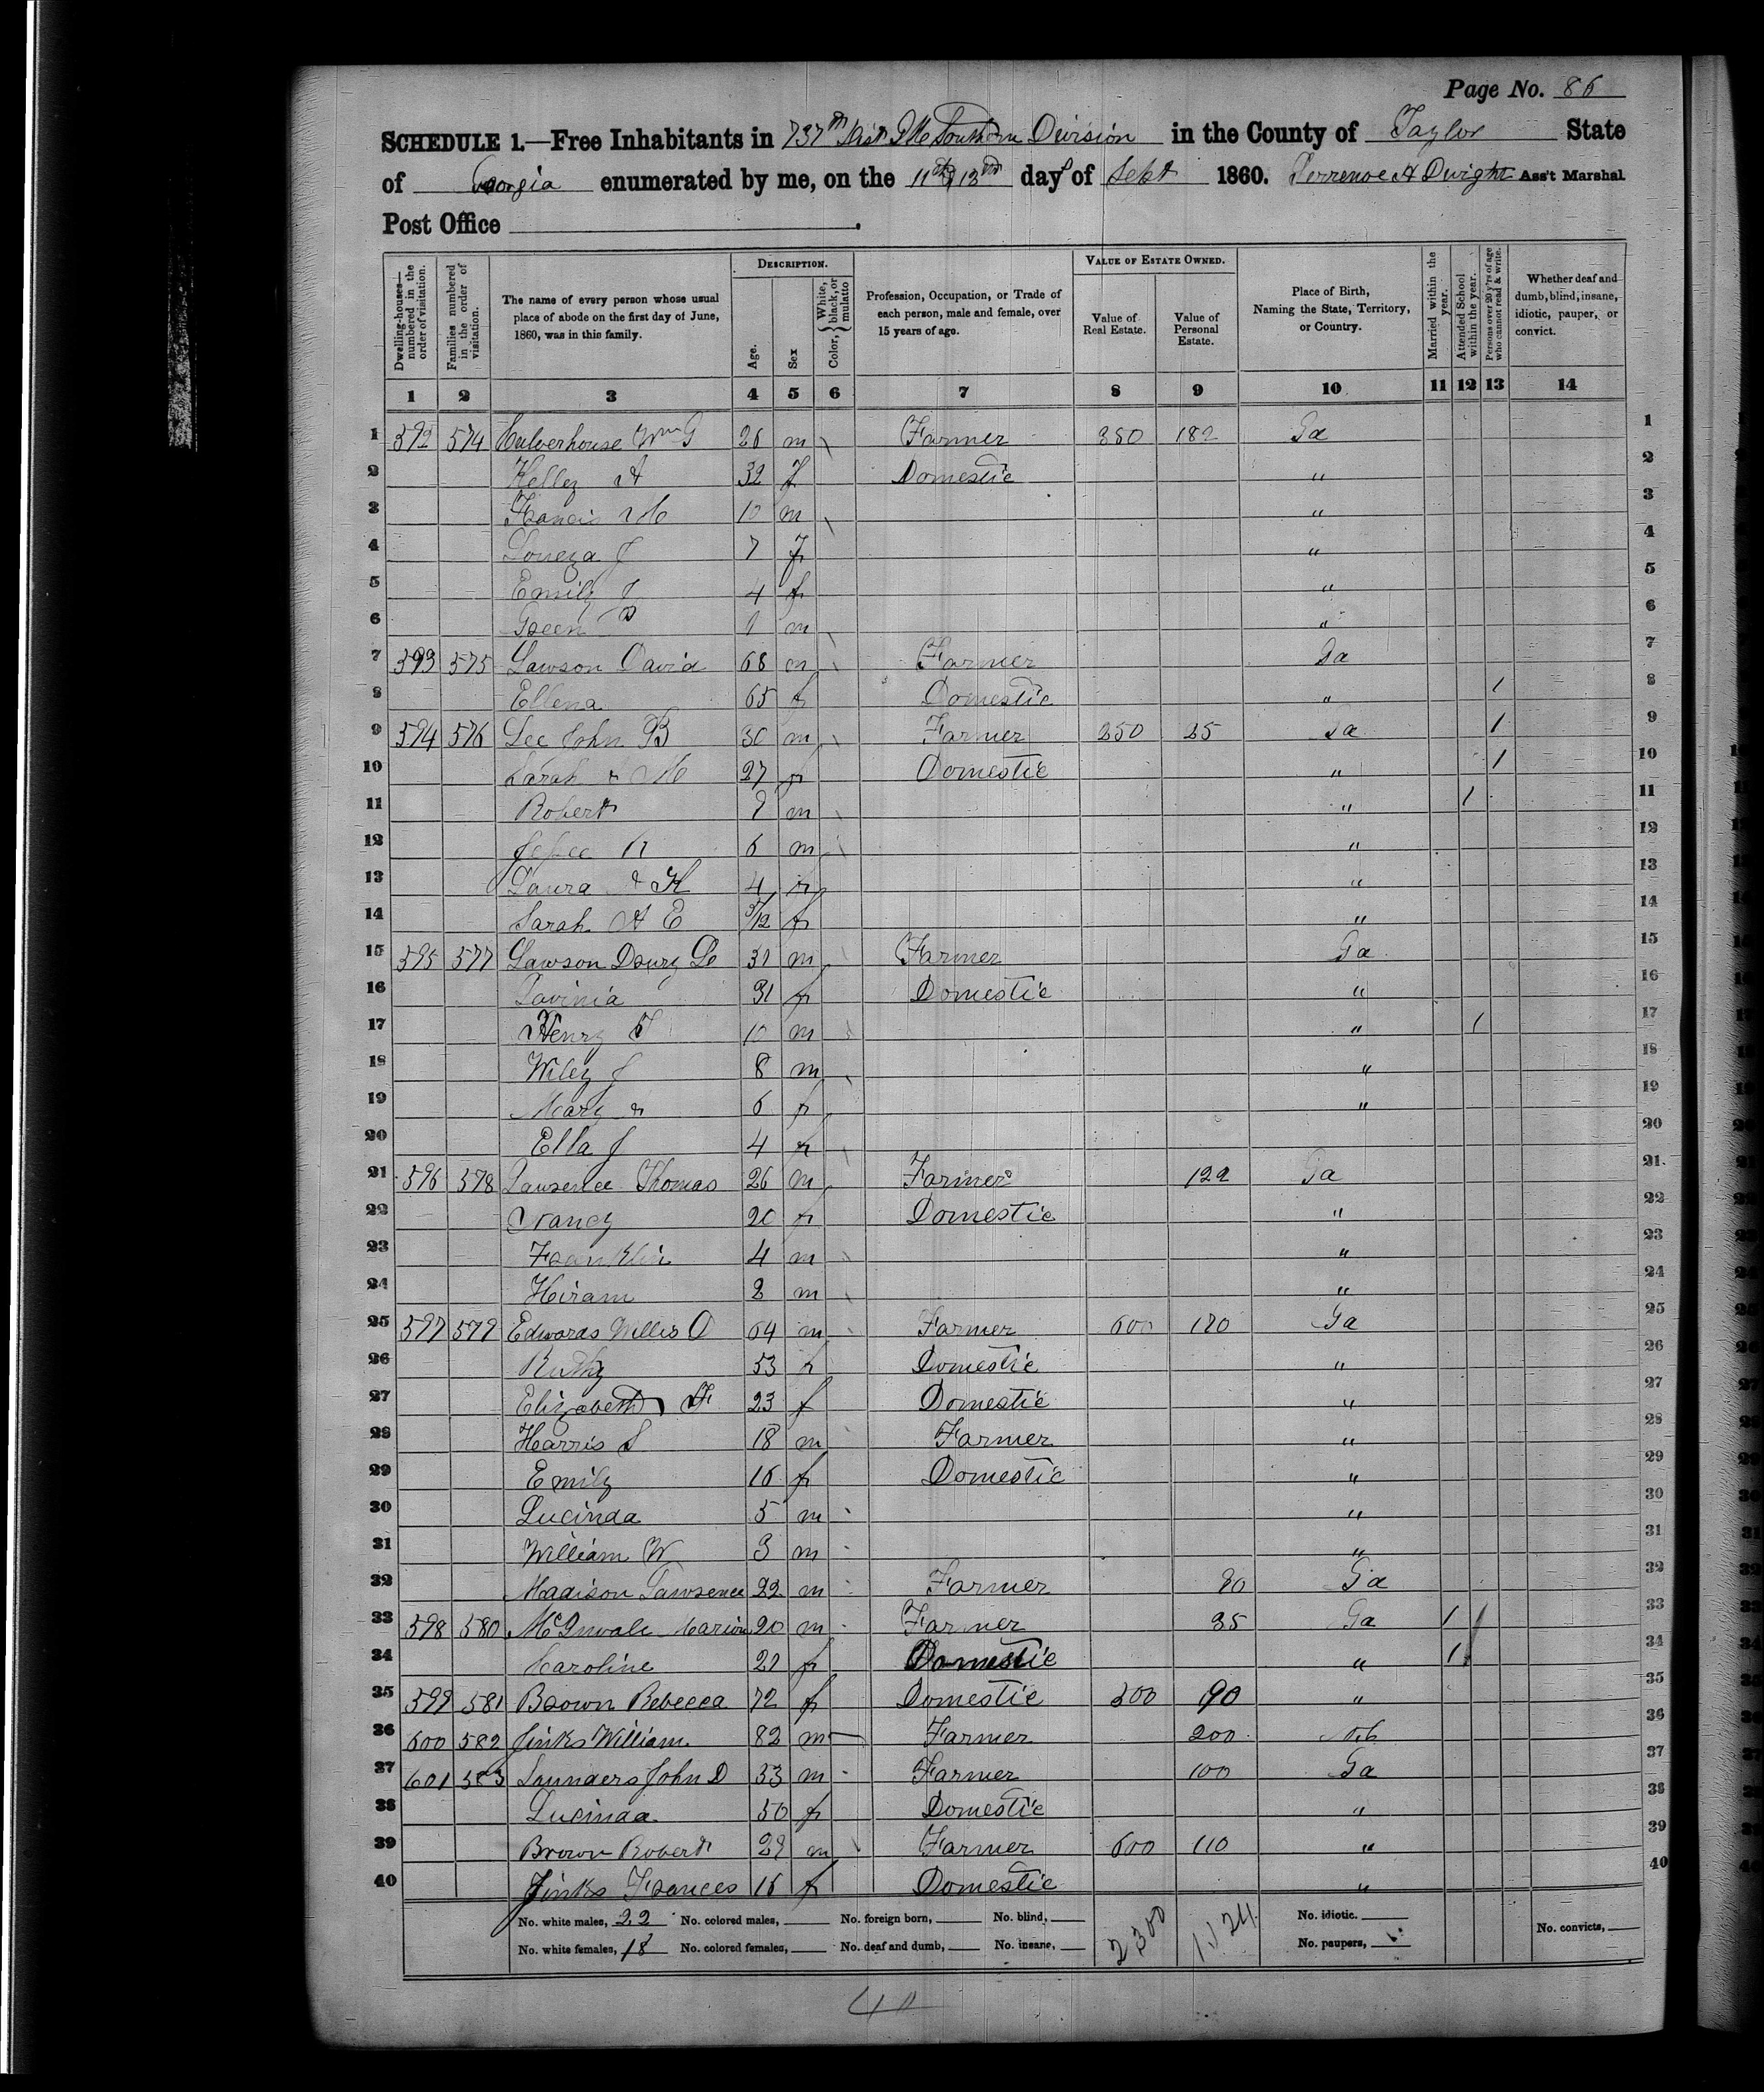 Page No. 86
SCHEDULE 1.—Free Inhabitants in 737th Dist GM Southern Division in the County of Taylor State
of Georgia enumerated by me, on the 11th & 13th day of Sept 1860. H Dwight Ass't Marshal
Post Office
Dwelling-houses—numbered in the order of visitation.
Families numbered in the order of visitation.
The name of every person whose usual place of abode on the first day of June, 1860, was in this family.
DESCRIPTION.
Age.
Sex
Color, White, black, or mulatto
Profession, Occupation, or Trade of each person, male and female, over 15 years of age.
VALUE OF ESTATE OWNED.
Value of Real Estate.
Value of Personal Estate.
Place of Birth, Naming the State, Territory, or Country.
Married within the year.
Attended School within the year.
Persons over 20 y'rs of age who cannot read & write.
Whether deaf and dumb, blind, insane, idiotic, pauper, or convict.
1 2 3 4 5 6 7 8 9 10 11 12 13 14
1 592 574 Culverhouse Wm G 26 m Farmer 350 182 Ga 1
2 A 32 f Domestic " 2
3 Francis M 10 m " 3
4 J 7 f " 4
5 Emily J 4 f " 5
6 Green 1 m " 6
7 593 575 Lawson David 68 m Farmer Ga 7
8 Ellena 65 f Domestic " 1 8
9 594 576 Lee John B 30 m Farmer 250 25 Ga 1 9
10 Sarah M 27 f Domestic " 1 10
11 Robert m " 1 11
12 R 6 m " 12
13 Laura A 4 f " 13
14 Sarah A E /12 f " 14
15 595 577 Lawson 31 m Farmer Ga 15
16 Lavinia 31 f Domestic " 16
17 Henry 10 m " 1 17
18 Wiley J 8 m " 18
19 Mary 6 f " 19
20 Ella J 4 f 20
21 596 578 Lawrence Thomas 26 m Farmer 122 Ga 21
22 Nancy 20 f Domestic " 22
23 Franklin 4 m " 23
24 Hiram 2 m " 24
25 597 579 Edwards Willis O 64 m Farmer 600 120 Ga 25
26 Ruthy 53 f Domestic " 26
27 Elizabeth 23 f Domestic " 27
28 Harris S 18 m Farmer " 28
29 Emily 16 f Domestic " 29
30 Lucinda 5 m " 30
31 William W 3 m " 31
32 Madison Lawrence 22 m Farmer Ga 32
33 598 580 Marion 20 m Farmer 35 Ga 1 33
34 Caroline 21 f Domestic " 1 34
35 599 581 Brown Rebecca 72 f Domestic 90 " 35
36 600 582 Jinks William 82 m Farmer 200 36
37 601 583 Saunders John D 33 m Farmer 100 Ga 37
38 Lucinda 50 f Domestic " 38
39 Brown Robert m Farmer 600 110 " 39
40 Jinks Frances 16 f Domestic " 40
No. white males, 22 No. colored males, No. foreign born, No. blind, 2300 No. idiotic. No. convicts,
No. white females, 18 No. colored females, No. deaf and dumb, No. insane, No. paupers,